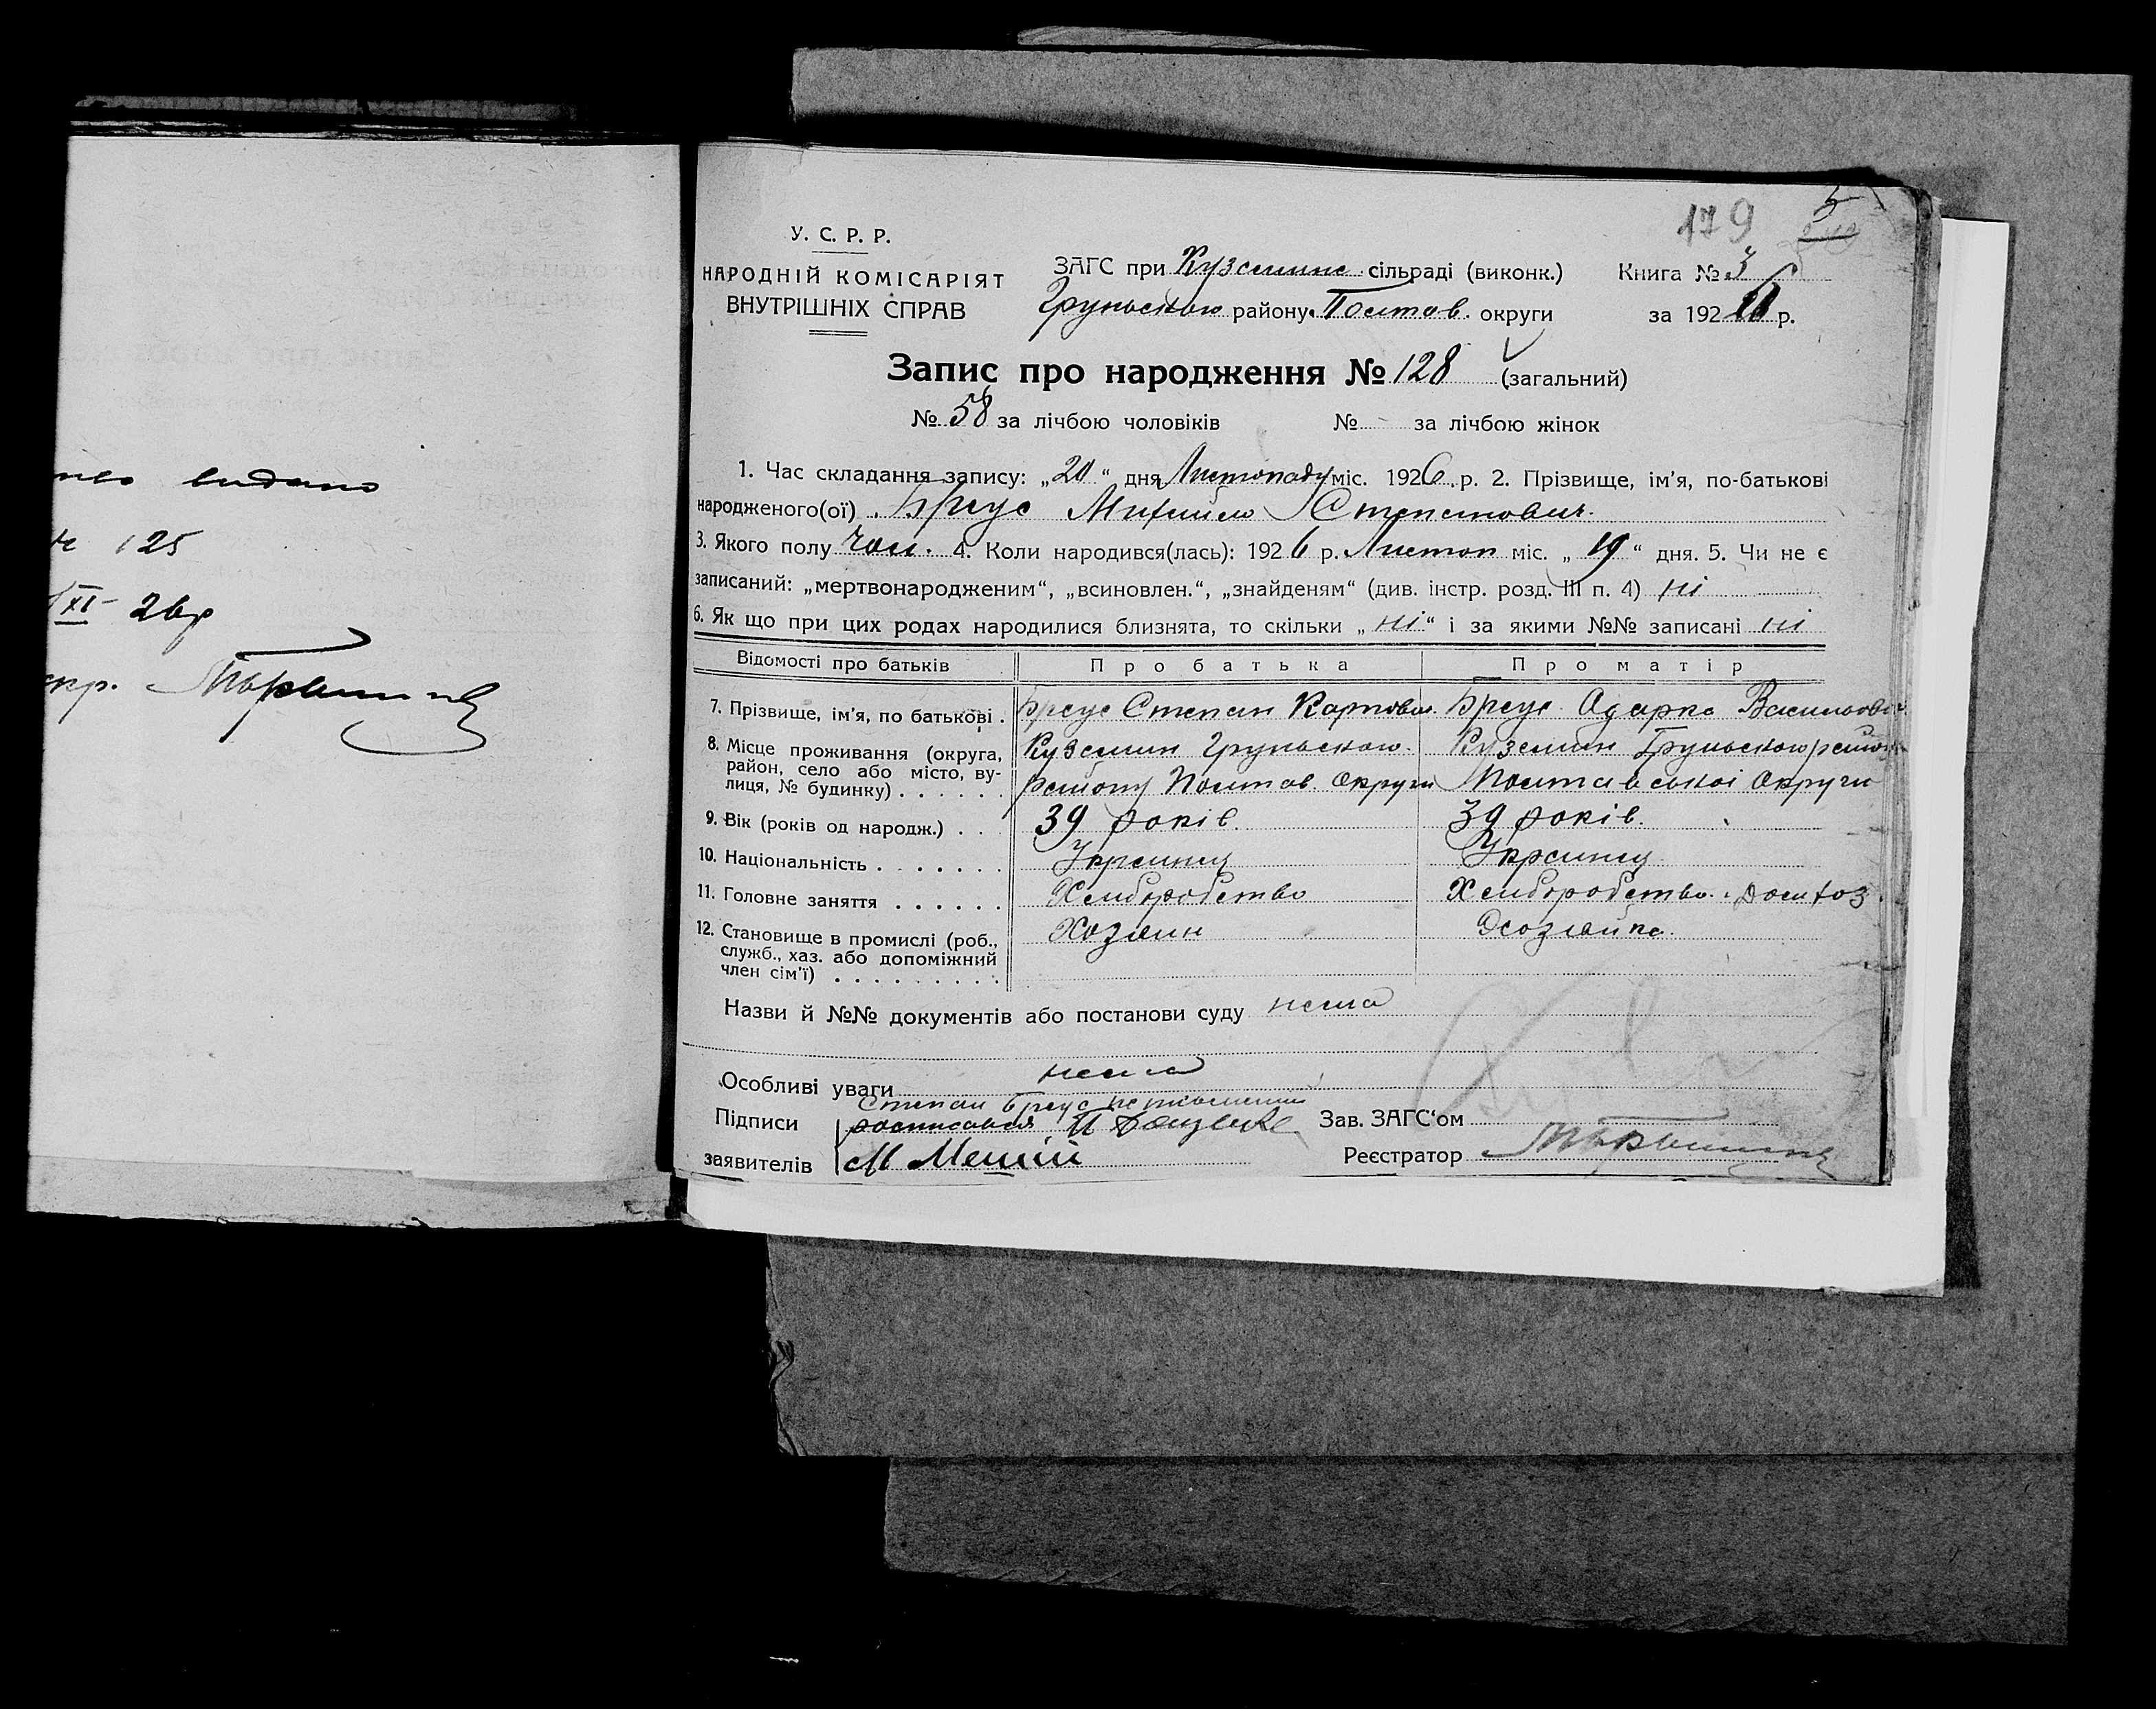 видано
125
XI 26р
179
У. С. Р. Р.
НАРОДНІЙ КОМІСАРІЯТ
ВНУТРІШНІХ СПРАВ
ЗАГС при Куземине сільраді (виконк.)
Груньського району Полтав. округи
Книга № 3
за 1926 р.
Запис про народження № 128 (загальний)
№ 58 за лічбою чоловіків № - за лічбою жінок
1. Час складання запису: „20“ дня Листопаду міс. 1926 р. 2. Прізвище, ім'я, по-батькові
народженого(ої) Бреус Михайло Степанович.
3. Якого полу чол. 4. Коли народився(лась): 1926 р. Листоп міс. „19“ дня. 5. Чи не є
записаний: „мертвонародженим“, „всиновлен.“, „знайденям“ (див. інстр. розд. III п. 4) ні
6. Як що при цих родах народилися близнята, то скільки „ні“ і за якими №№ записані ні
Відомості про батьків Про батька Про матір
7. Прізвище, ім'я, по батькові . Бреус Степан Карпович. Бреус Одарка Васильовн
8. Місце проживання (округа, район, село або місто, вулиця, № будинку) . . . . . .
Куземин Груньського. Куземин Груньського району
району Полтав. Округи Полтавської Округи
9. Вік (років од народж.) . . . 39 років. 39 років.
10. Національність . . . . . . . Українец Українец
11. Головне заняття . . . . . . Хліборобство Хліборобство. Домхоз.
12. Становище в промислі (роб., служб., хаз. або допоміжний член сім'ї) . . . . . . . . .
Хозяин Хозяйка.
Назви й №№ документів або постанови суду нема
Особливі уваги нема
Підписи
заявителів
Степан Бреус неписьменний
росписався
Зав. ЗАГС'ом
Реєстратор